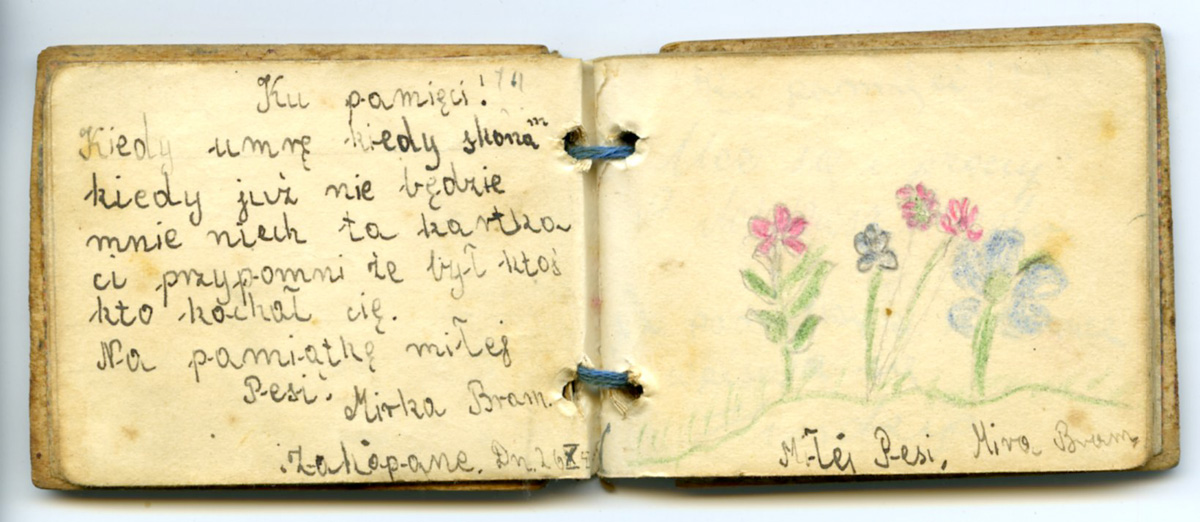 Ku pamięci!
Kiedy umrę kiedy skonam
kiedy już nie będzie
mnie niech ta kartka
ci przypomni że był ktoś
kto kochał cię.
Na pamiątkę miłej
Pesi. Mirka Bram.
Zakopane. Dn. 26
Miłej Pesi, Mira Bram.